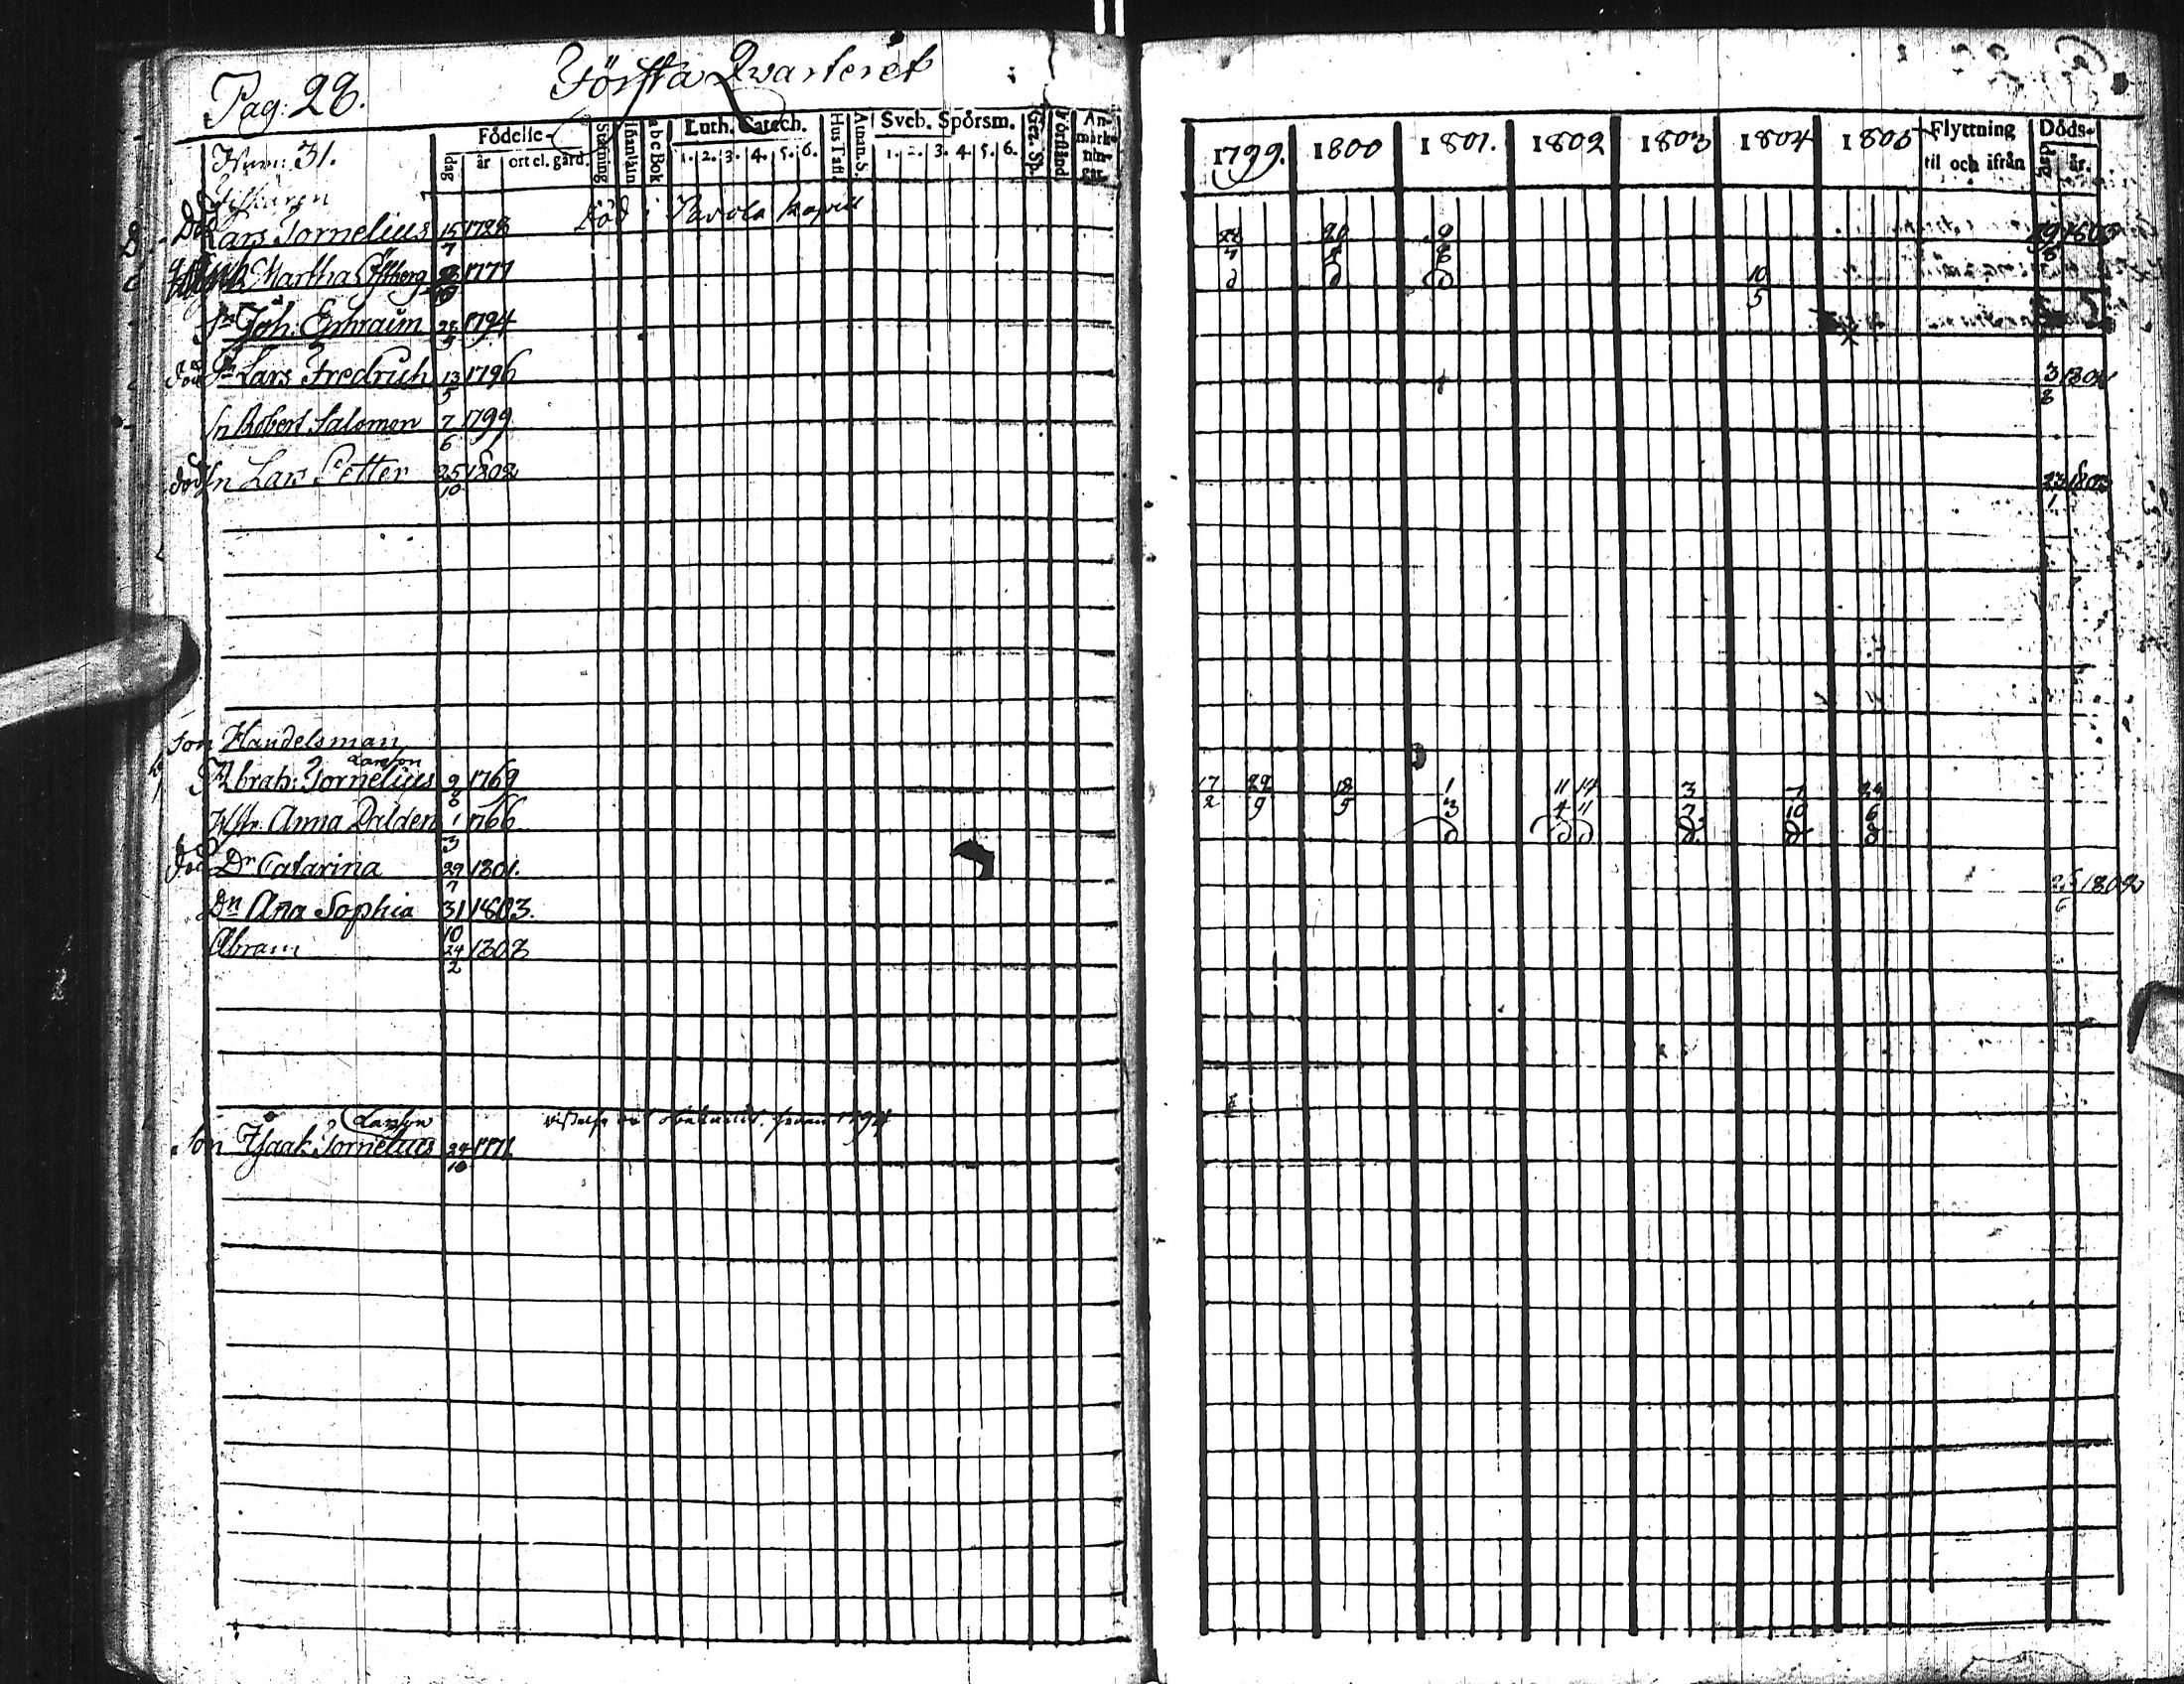 Pag: 28.
Första Qvarteret
Num: 31.
Födelse-
dag
år
ort el. gård.
Stafning
Innanläsn
a b c Bok
Luth. Catech.
1. 2. 3. 4. 5. 6.
Hus Tafl.
Athan. S.
Sveb. Spörsm.
1. 2. 3. 4. 5. 6.
Gez. Sp.
Förstånd
An-
märk-
nin-
gar.
1799. 1800 1801. 1802 1803 1804 1805
Flyttning
til och ifrån
Döds-
dag
år.
Fiskaren
Död Lars Tornelius 15/7 1728 Död 22/7 20 9
Martha 1777 10/5
Sn Joh. Ephraim 23/5 1794
död Sn Lars Fredrich 13/5 1796 3/8
Sn Robert Salomon 7/6 1799
död Sn Lars Petter 25/10 1802 23/1 1803
son Handelsman
Larsson
Abrah: Tornelius 9/8 1769 17/2 29/9 18/5 1/3 11/4 14/11 3/7 24/6
Hstr. Anna Dalden 1/3 1766
död Dr Catarina 29/7 1801. 1802
Dn Ana Sophia 31/10 1803.
Abram 24/2 1808
Larsson
son Isaak Tornelius 24/10 1771 sedan 1794